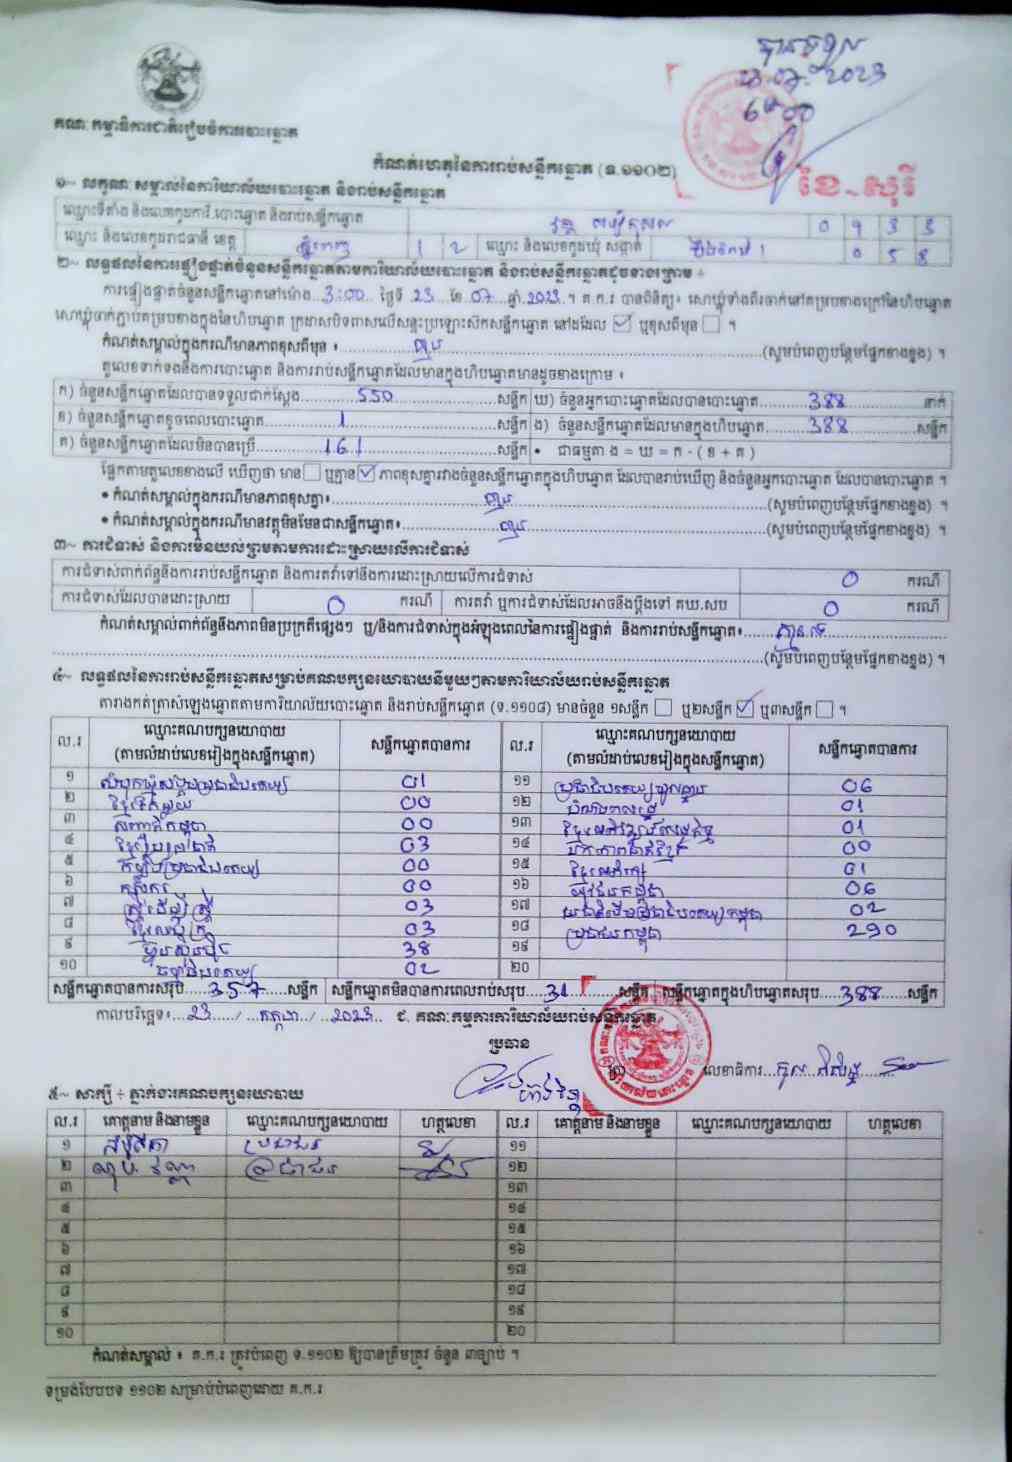 បានទទួល
23.07.2023
គណៈកម្មាធិការជាតិរៀបចំការបោះឆ្នោត
កំណត់ហេតុនៃការរាប់សន្លឹកឆ្នោត (ទ.១១០២)
ខែ-សុរី
១~ លក្ខណៈសម្គាល់នៃការិយាល័យបោះឆ្នោត និងរាប់សន្លឹកឆ្នោត
ឈ្មោះទីតាំង និងលេខកូដការិ.បោះឆ្នោត និងរាប់សន្លឹកឆ្នោត វត្ត 0 9 3 3
ឈ្មោះ និងលេខកូដរាជធានី ខេត្ត ភ្នំពេញ 1 2 ឈ្មោះ និងលេខកូដឃុំ សង្កាត់ 0 5 8
២~ លទ្ធផលនៃការផ្ទៀងផ្ទាត់ចំនួនសន្លឹកឆ្នោតតាមការិយាល័យបោះឆ្នោត និងរាប់សន្លឹកឆ្នោតដូចខាងក្រោម ÷
ការផ្ទៀងផ្ទាត់ចំនួនសន្លឹកឆ្នោតនៅម៉ោង 3:00 ថ្ងៃទី 23 ខែ 07 ឆ្នាំ 2023 ។ គ.ក.រ បានពិនិត្យ៖ សោឃ្លុំទាំងពីរចាក់នៅគម្របខាងក្រៅនៃហិបឆ្នោត
សោឃ្លុំចាក់ភ្ជាប់គម្របខាងក្នុងនៃហិបឆ្នោត ក្រដាសបិទពាសលើសន្ទះប្រឡោះសឹកសន្លឹកឆ្នោត នៅដដែល ☑ ឬខុសពីមុន ☐ ។
កំណត់សម្គាល់ក្នុងករណីមានភាពខុសពីមុន ៖ គ្មាន (សូមបំពេញបន្ថែមផ្នែកខាងខ្នង) ។
តួលេខទាក់ទងនឹងការបោះឆ្នោត និងការរាប់សន្លឹកឆ្នោតដែលមានក្នុងហិបឆ្នោតមានដូចខាងក្រោម ៖
ក) ចំនួនសន្លឹកឆ្នោតដែលបានទទួលជាក់ស្តែង 550 សន្លឹក ឃ) ចំនួនអ្នកបោះឆ្នោតដែលបានបោះឆ្នោត 388 នាក់
ខ) ចំនួនសន្លឹកឆ្នោតខូចពេលបោះឆ្នោត 1 សន្លឹក ង) ចំនួនសន្លឹកឆ្នោតដែលមានក្នុងហិបឆ្នោត 388 សន្លឹក
គ) ចំនួនសន្លឹកឆ្នោតដែលមិនបានប្រើ 161 សន្លឹក • ជាធម្មតា ង = ឃ = ក - ( ខ + គ )
ផ្អែកតាមតួលេខខាងលើ ឃើញថា មាន ☐ ឬគ្មាន ☑ ភាពខុសគ្នារវាងចំនួនសន្លឹកឆ្នោតក្នុងហិបឆ្នោត ដែលបានរាប់ឃើញ និងចំនួនអ្នកបោះឆ្នោត ដែលបានបោះឆ្នោត ។
• កំណត់សម្គាល់ក្នុងករណីមានភាពខុសគ្នា៖ គ្មាន (សូមបំពេញបន្ថែមផ្នែកខាងខ្នង) ។
• កំណត់សម្គាល់ក្នុងករណីមានវត្ថុមិនមែនជាសន្លឹកឆ្នោត៖ គ្មាន (សូមបំពេញបន្ថែមផ្នែកខាងខ្នង) ។
៣~ ការជំទាស់ និងការមិនយល់ព្រមតាមការដោះស្រាយលើការជំទាស់
ការជំទាស់ពាក់ព័ន្ធនឹងការរាប់សន្លឹកឆ្នោត និងការតវ៉ាទៅនឹងការដោះស្រាយលើការជំទាស់ 0 ករណី
ការជំទាស់ដែលបានដោះស្រាយ 0 ករណី ការតវ៉ា ឬការជំទាស់ដែលអាចនឹងប្តឹងទៅ គឃ.សប 0 ករណី
កំណត់សម្គាល់ពាក់ព័ន្ធនឹងភាពមិនប្រក្រតីផ្សេងៗ ឬ/និងការជំទាស់ក្នុងអំឡុងពេលនៃការផ្ទៀងផ្ទាត់ និងការរាប់សន្លឹកឆ្នោត៖ គ្មានទេ
(សូមបំពេញបន្ថែមផ្នែកខាងខ្នង) ។
៤~ លទ្ធផលនៃការរាប់សន្លឹកឆ្នោតសម្រាប់គណបក្សនយោបាយនីមួយៗតាមការិយាល័យរាប់សន្លឹកឆ្នោត
តារាងកត់ត្រាសំឡេងឆ្នោតតាមការិយាល័យបោះឆ្នោត និងរាប់សន្លឹកឆ្នោត (ទ.១១០៨) មានចំនួន ១សន្លឹក ☐ ឬ២សន្លឹក ☑ ឬ៣សន្លឹក ☐ ។
ល.រ ឈ្មោះគណបក្សនយោបាយ (តាមលំដាប់លេខរៀងក្នុងសន្លឹកឆ្នោត) សន្លឹកឆ្នោតបានការ ល.រ ឈ្មោះគណបក្សនយោបាយ (តាមលំដាប់លេខរៀងក្នុងសន្លឹកឆ្នោត) សន្លឹកឆ្នោតបានការ
១ សំបុកឃ្មុំសង្គមប្រជាធិបតេយ្យ 01 ១១ 06
២ ខ្មែរតែមួយ 00 ១២ 01
៣ សញ្ជាតិកម្ពុជា 00 ១៣ 01
៤ ខ្មែររួបរួមជាតិ 03 ១៤ 00
៥ កម្លាំងប្រជាធិបតេយ្យ 00 ១៥ 01
៦ កសិករ 00 ១៦ យុវជនកម្ពុជា 06
៧ ស្ត្រីដើម្បីស្ត្រី 03 ១៧ 02
៨ 03 ១៨ ប្រជាជនកម្ពុជា 290
៩ ហ្វ៊ុនស៊ិនប៉ិច 38 ១៩
១០ ធម្មាធិបតេយ្យ 02 ២០
សន្លឹកឆ្នោតបានការសរុប 357 សន្លឹក សន្លឹកឆ្នោតមិនបានការពេលរាប់សរុប 31 សន្លឹក សន្លឹកឆ្នោតក្នុងហិបឆ្នោតសរុប 388 សន្លឹក
កាលបរិច្ឆេទ៖ 23 / កក្កដា / 2023 ជ. គណៈកម្មការការិយាល័យរាប់សន្លឹកឆ្នោត
ប្រធាន
លេខាធិការ
៥~ សាក្សី ÷ ភ្នាក់ងារគណបក្សនយោបាយ
ល.រ គោត្តនាម និងនាមខ្លួន ឈ្មោះគណបក្សនយោបាយ ហត្ថលេខា ល.រ គោត្តនាម និងនាមខ្លួន ឈ្មោះគណបក្សនយោបាយ ហត្ថលេខា
១ ប្រជាជន ១១
២ ប្រជាជន ១២
៣ ១៣
៤ ១៤
៥ ១៥
៦ ១៦
៧ ១៧
៨ ១៨
៩ ១៩
១០ ២០
កំណត់សម្គាល់ ៖ គ.ក.រ ត្រូវបំពេញ ទ.១១០២ ឱ្យបានត្រឹមត្រូវ ចំនួន ៣ច្បាប់ ។
ទម្រង់បែបបទ ១១០២ សម្រាប់បំពេញដោយ គ.ក.រ